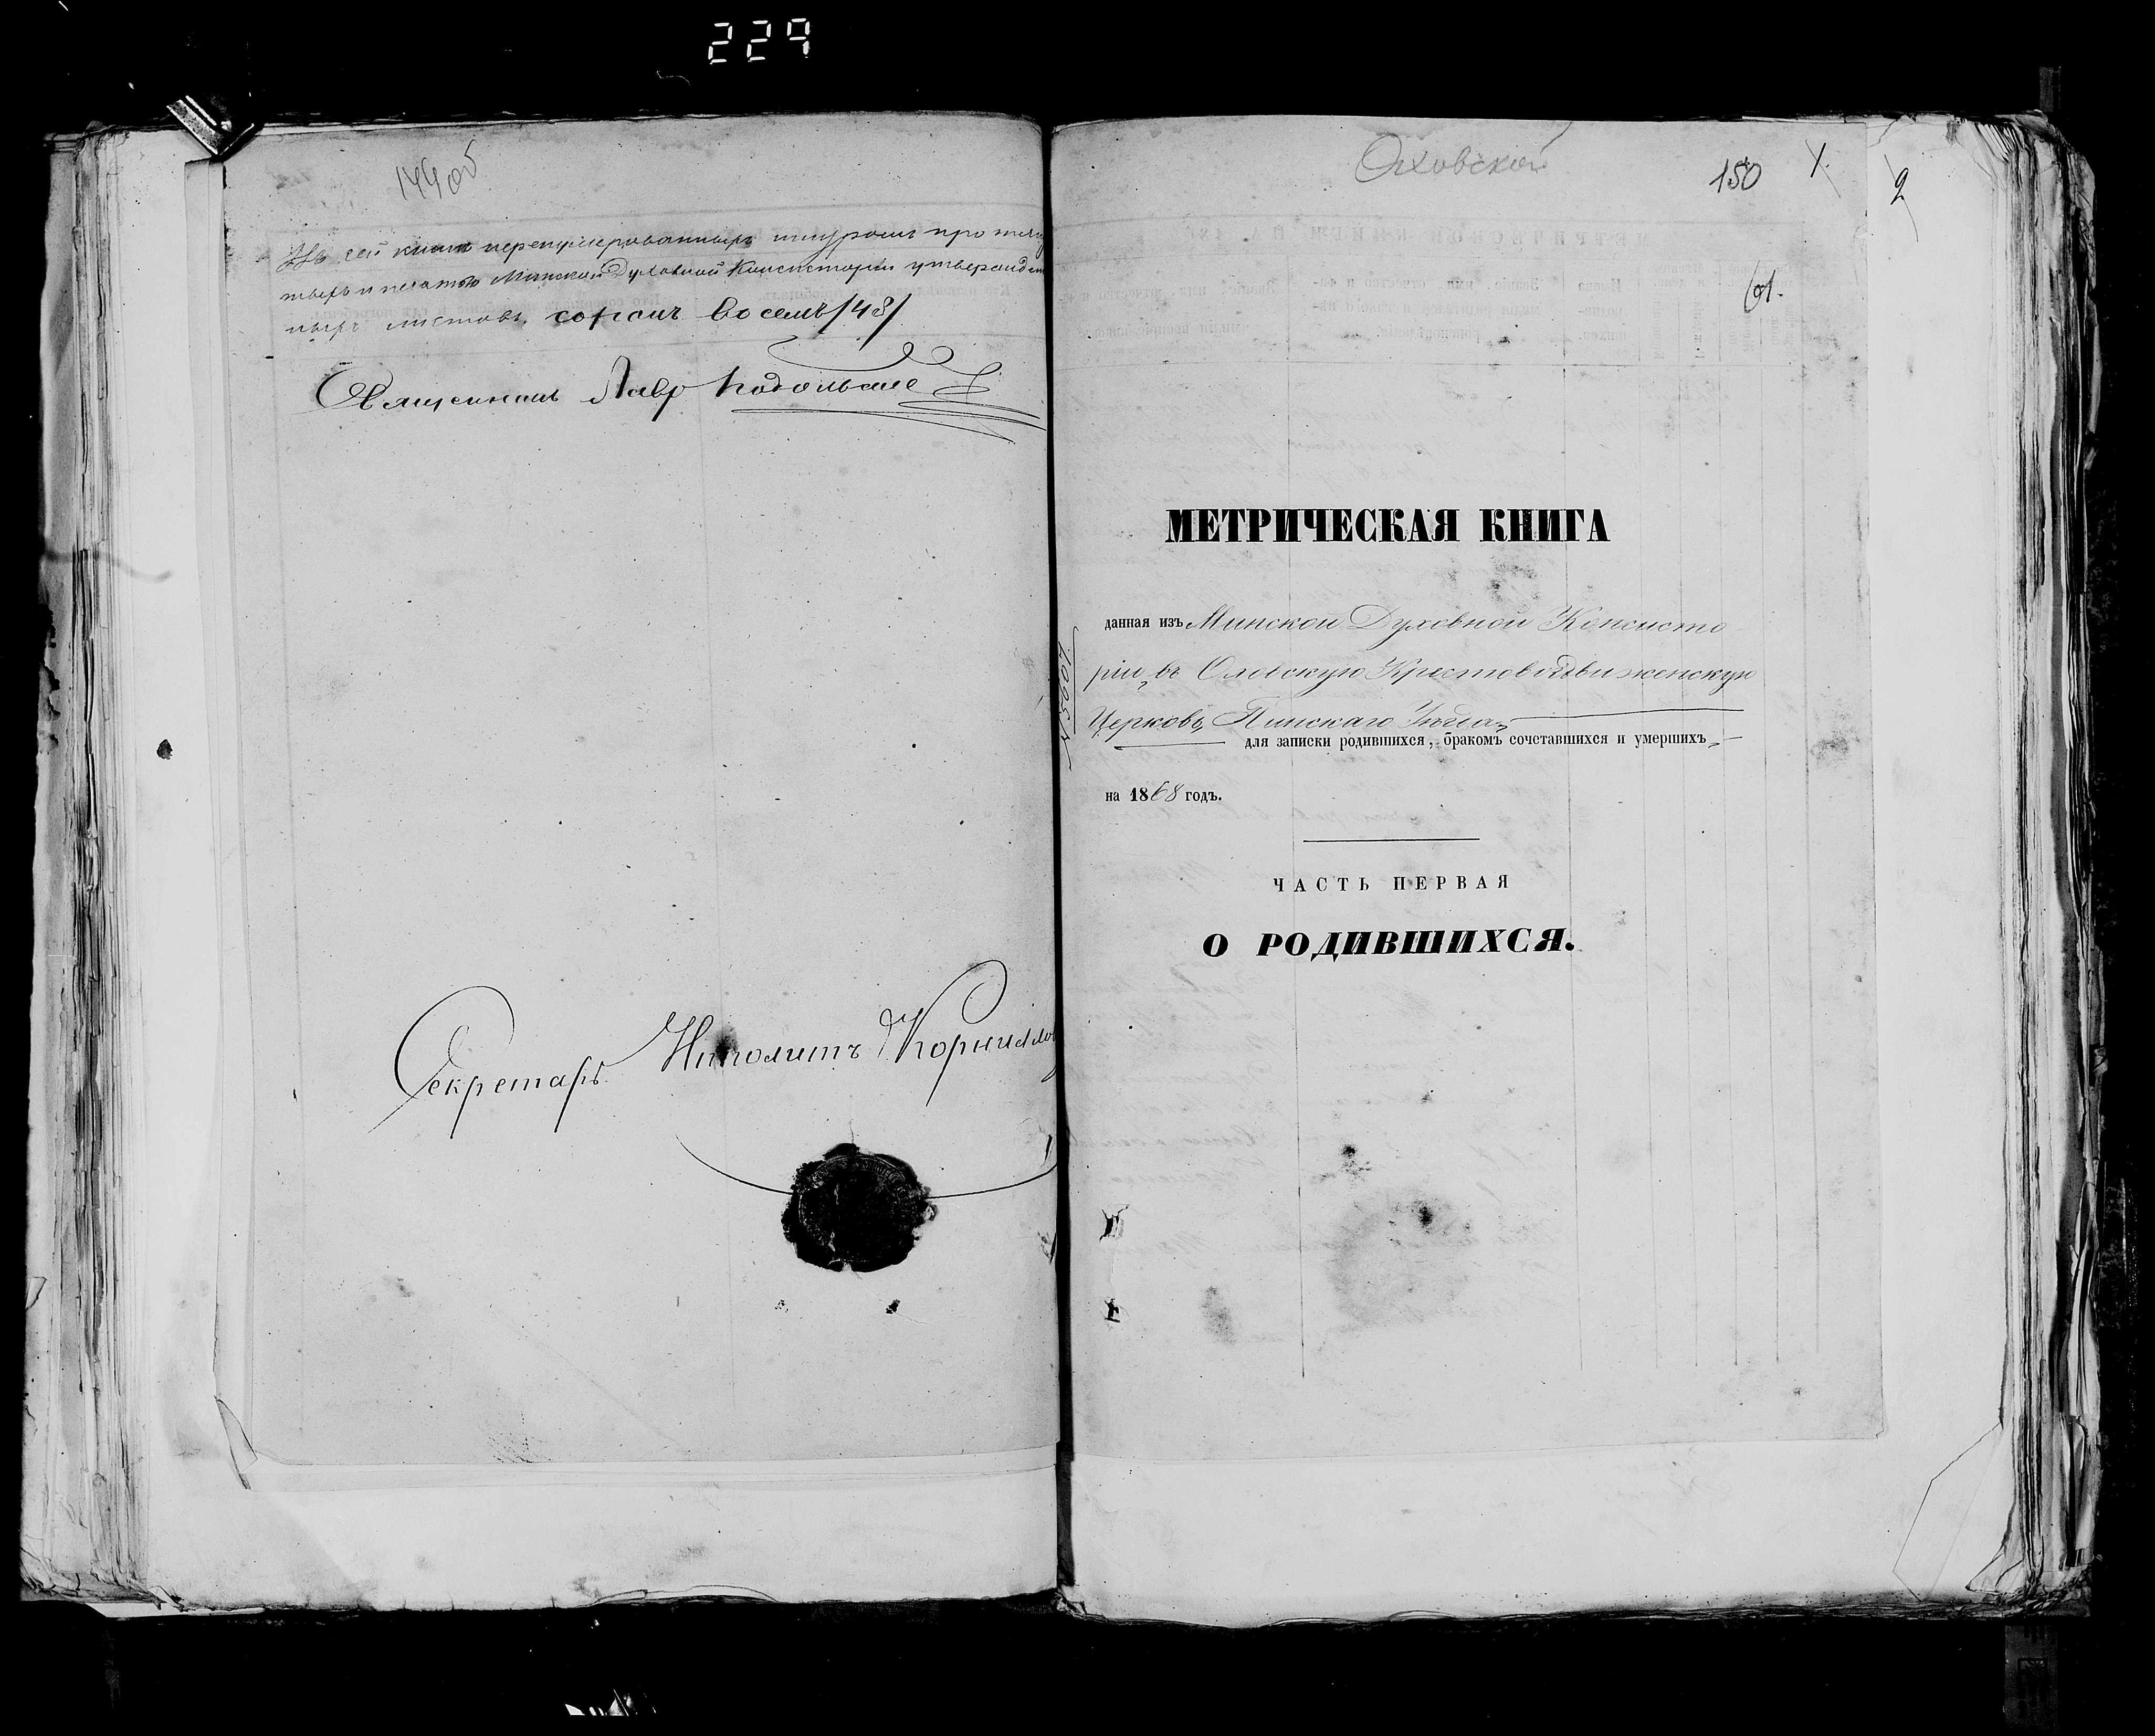 229
149 об
Въ сей книгѣ перенумерованныхъ шнуромъ
и печатью Минской Духовной Консисторіи
ныхъ листовъ, сорокъ восемь /48/
Священникъ Лавръ
Секретарь Иполитъ Корнилло
Оховской
150 1.
2
61.
МЕТРИЧЕСКАЯ КНИГА
данная изъ Минской Духовной Консисто
ріи въ Оховскую Крестовоздвиженскую
Церковь, Пинскаго Уѣзда
для записки родившихся, бракомъ сочетавшихся и умершихъ
на 1868 годъ.
ЧАСТЬ ПЕРВАЯ
О РОДИВШИХСЯ.